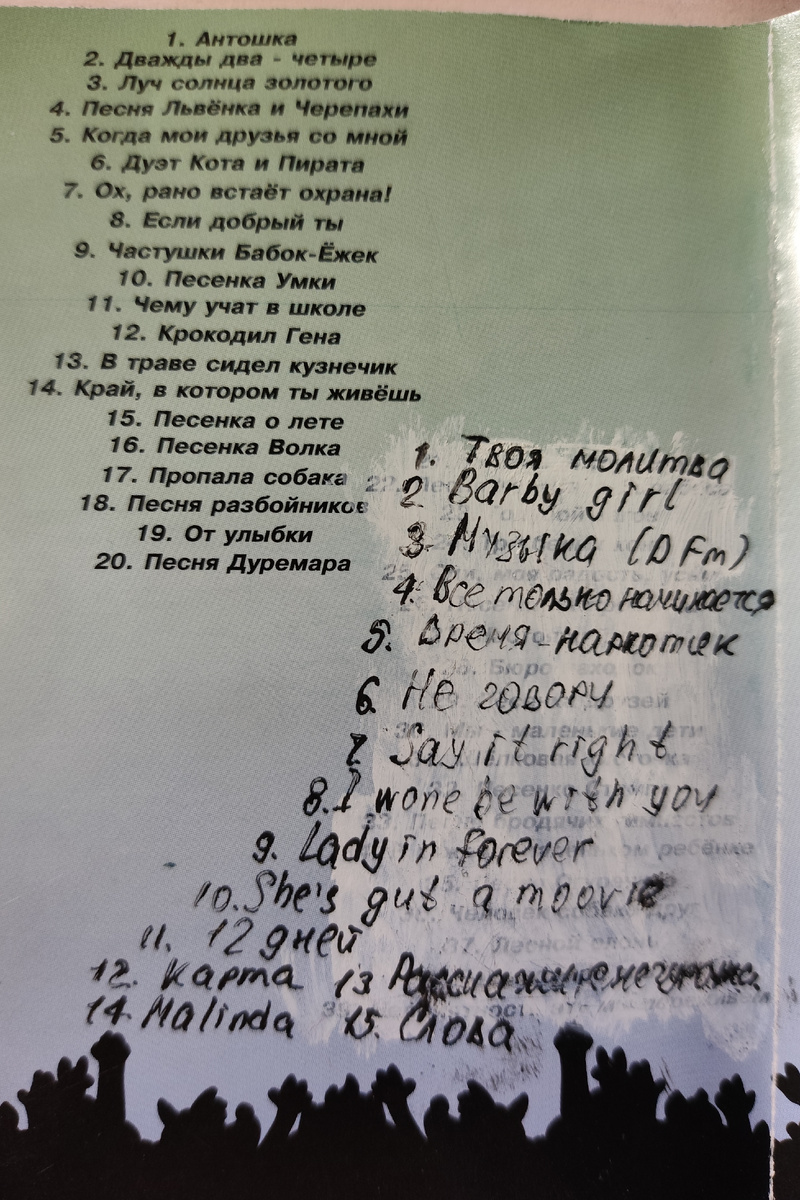 1. Антошка
2. Дважды два - четыре
3. Луч солнца золотого
4. Песня Львёнка и Черепахи
5. Когда мои друзья со мной
6. Дуэт Кота и Пирата
7. Ох, рано встаёт охрана!
8. Если добрый ты
9. Частушки Бабок-Ёжек
10. Песенка Умки
11. Чему учат в школе
12. Крокодил Гена
13. В траве сидел кузнечик
14. Край, в котором ты живёшь
15. Песенка о лете
16. Песенка Волка
17. Пропала собака
18. Песня разбойников
19. От улыбки
20. Песня Дуремара
1. Твоя молитва
2 Barby girl
3. Музыка (DFm)
4. Все только начинается
5. Время-наркотик
6. Не говори
7. Say it right
8. I wone be with you
9. Lady in forever
10. She's gut a moovie
11. 12 дней
12. Карта 13
14. Malinda 15. Слова